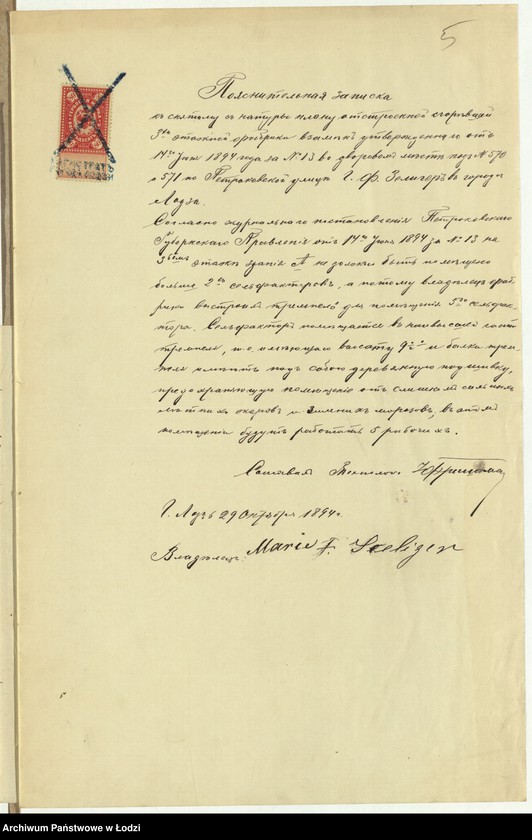 5
Пояснительная записка
къ снятому съ натуры плану отстроенной сгорѣвшей
3хъ этажной фабрики взамѣнъ утвержденнаго отъ
14го Іюня 1894 года за № 13 во дворовомъ мѣстѣ подъ № 570
и 571 по Петроковской улицѣ Г. Ф. Зелигеръ въ городѣ
Лодзи.
Согласно журнальнаго постановленія Петроковскаго
Губернскаго Правленія отъ 14го Іюня 1894 за № 13 на
3емъ этажѣ зданія А не должны быть помѣщено
больше 2хъ сельфакторовъ, а потому владѣлецъ фаб-
рики выстроилъ тремпель для помѣщенія 5го сельфак-
тора. Сельфакторъ помѣщается въ наивысшей части
тремпеля, имѣющаго высоту и балки
имѣютъ подъ собою деревянную подшивку,
предохраняющую помѣщеніе отъ слишкомъ сильныхъ
лѣтнихъ жаровъ и зимнихъ морозовъ, въ этомъ
помѣщеніи будутъ работать 5 рабочихъ.
Составилъ Технологъ
Г. Лодзь 29 Октября 1894 г.
Владѣлецъ Marie F. Seeliger
Archiwum Państwowe w Łodzi